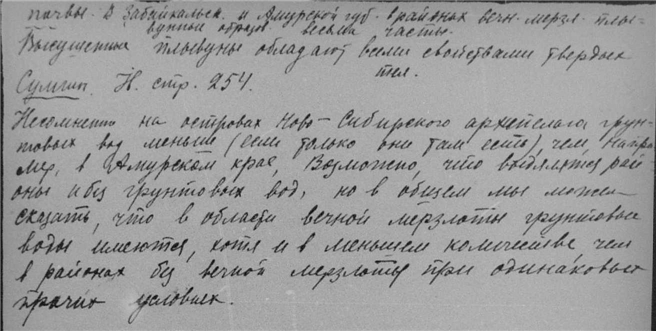 почвы. В Забайкальск. и Амурской губ. в районах вечн. мерзл. плы-
вунный образ. весьма часты.
Высушенные плывуны обладают всеми свойствами твердых
тел.
Сумгин. Н. стр. 254.
Несомненно на островах Ново-Сибирского архипелага грун-
товых вод меньше (если только они там есть), чем, напри
мер, в Амурском крае, Возможно, что выдялятся рай
оны и без грунтовых вод, но в общем мы можем
сказать, что в области вечной мерзлоты грунтовые
воды имеются, хотя и в меньшем количестве чем
в районах без вечной мерзлоты при одинаковых
прочих условиях.